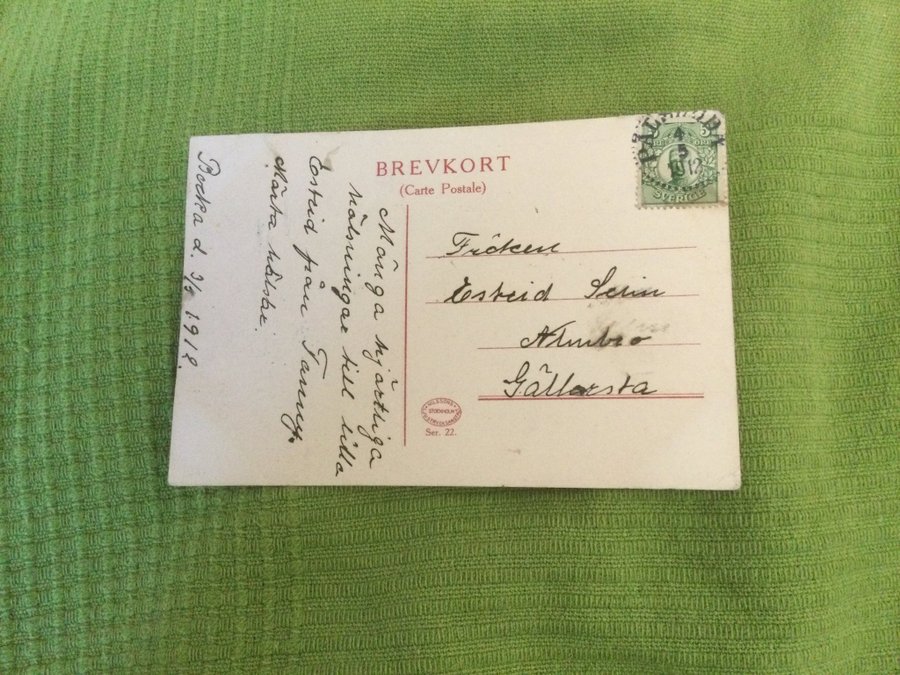 BREVKORT
(Carte Postale)
5
4
5
1912
SVERIGE
Fröken
Estrid
Almbro
Gällersta
STOCKHOLM
Ser. 22.
Många hjärtliga
hälsningar till lilla
Estrid från
Märta hälsar.
d. 1912.